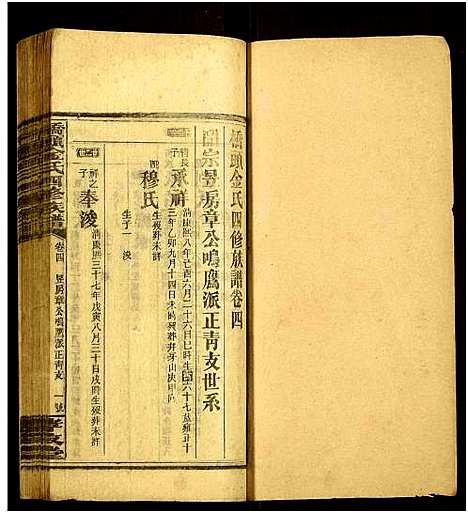 橋頭金氏四修族譜卷四
昱房章公鳴鷹派正青支世系
長子 承祥 清康熙八年乙酉六月二十六日巳時生 六十七歲雍正十
三年乙卯九月十四日未時歿葬牙山庚甲向
配 穆氏 生歿葬未詳
生子一 浚
祥之子 奉浚 清康熙三十七年戊寅八月二十日戌時生歿葬未詳
橋頭金氏四修族譜
卷四 昱房章公鳴鷹派正青支 一號